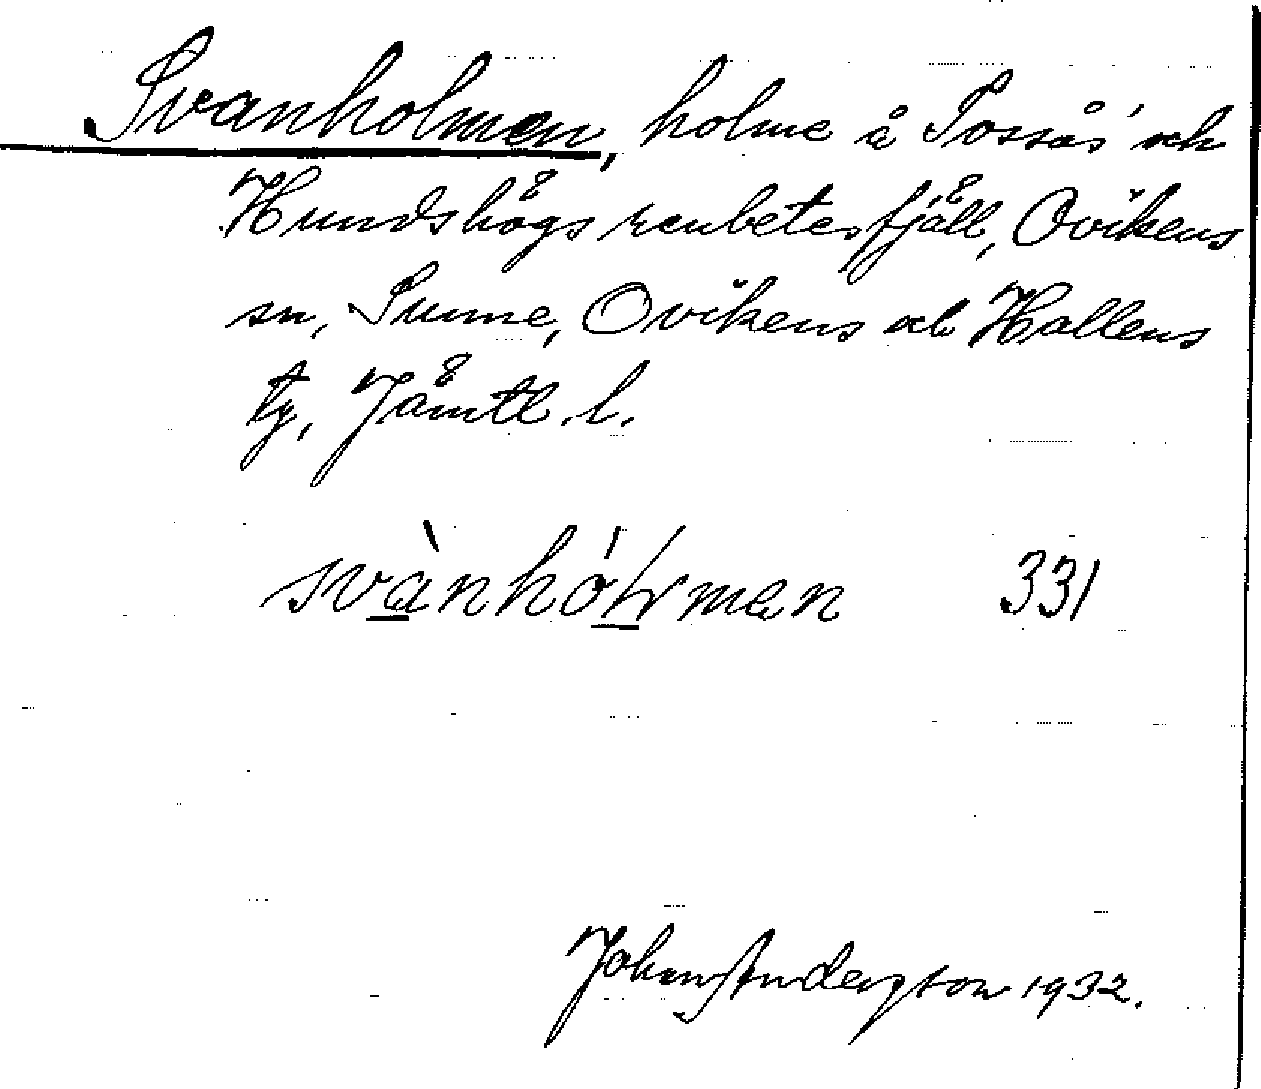 Svanholmen, holme å Tossås' och
Hundshögs renbetesfjäll, Ovikens
sn, Sunne, Ovikens och Hallens
tg, Jämtl. l.
svànhólmen 331
Johan Anderzson 1932.